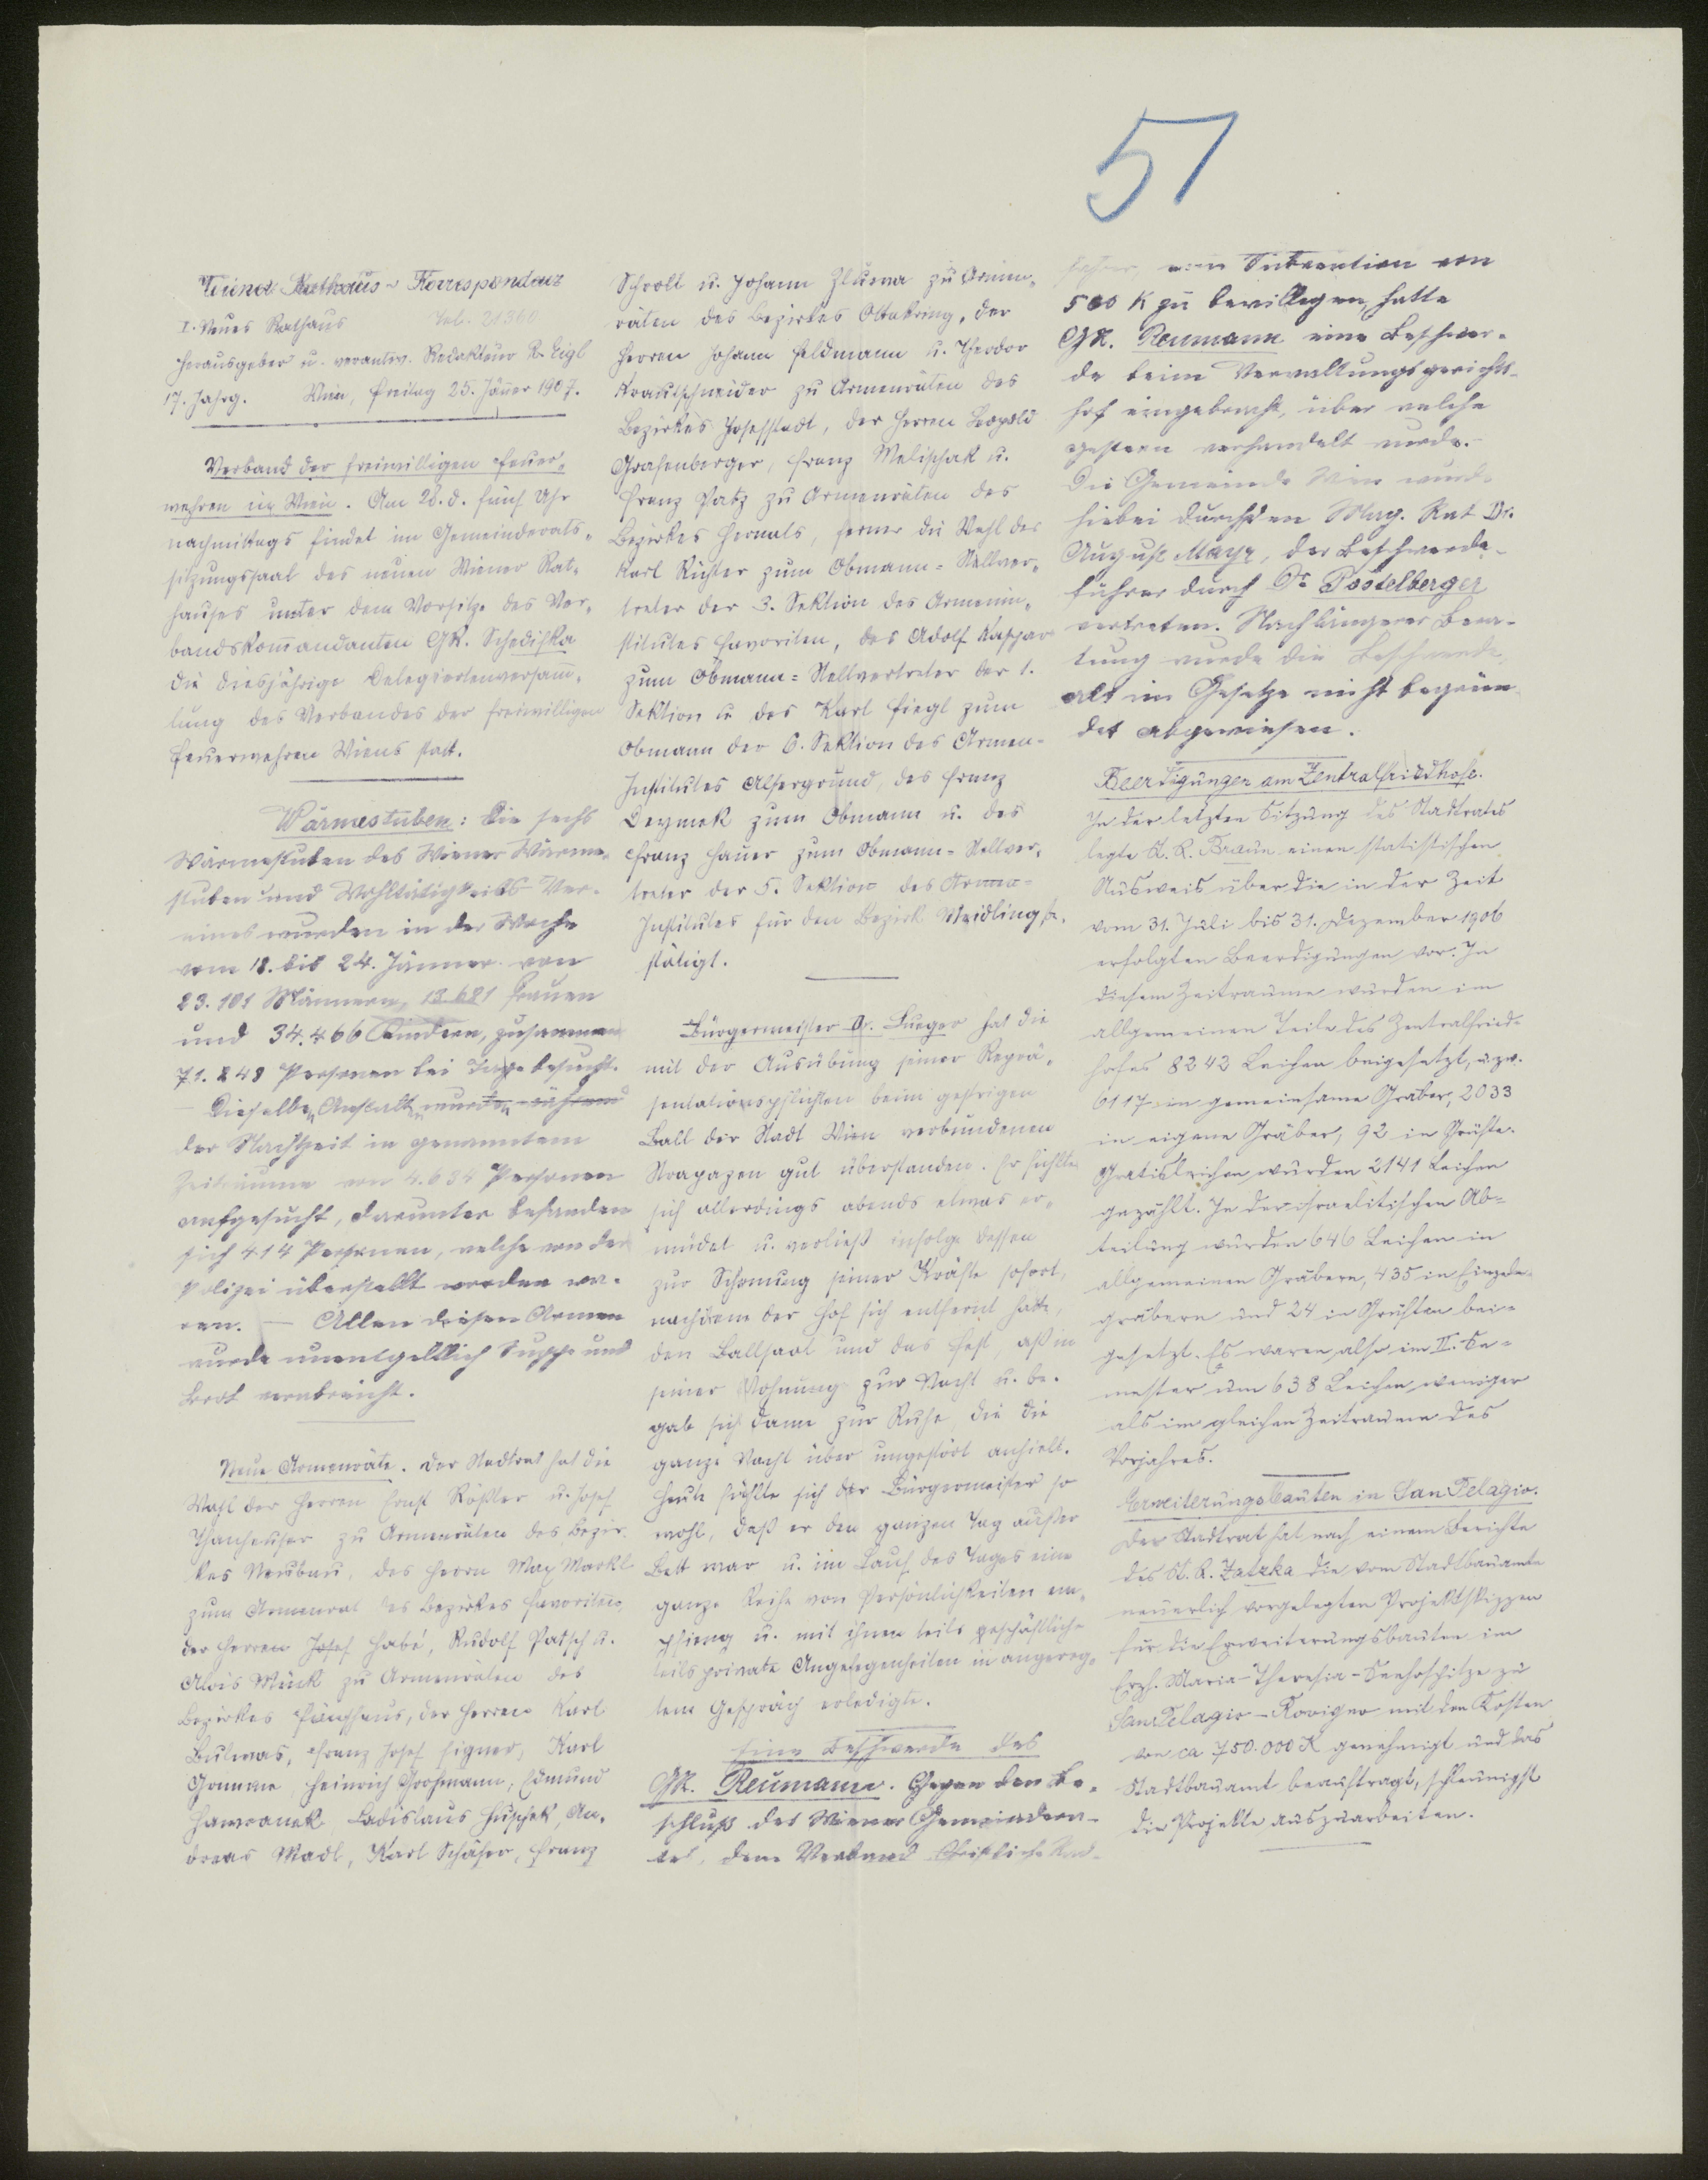 57
Wiener Rathaus-Korrespondenz
I. Neues Rathaus Tel. 21360
Herausgeber u. verantw. Redakteur R. Eigl
17. Jahrg. Wien, Freitag 25. Jäner 1907.
Verband der freiwilligen Feuer-
wehren in Wien. Am 28. d. fünf Uhr
nachmittags findet im Gemeinderats-
sitzungssaal des neuen Wiener Rat-
hauses unter dem Vorsitze des Ver-
bandskom̄andanten GR. Schedifka
die diesjährige Delegiertenversam̄-
lung des Verbandes der freiwilligen
Feuerwehren Wiens statt.
Wärmestuben: Die sechs
Wärmestuben des Wiener Wärme-
stuben und Wohltätigkeits-Ver-
eines wurden in der Woche
vom 18. bis 24. Jänner von
23.101 Männern, 13.681 Frauen
und 34.466 Kindern, zusammen
71.248 Personen bei Tage besucht.
— Dieselben Anstalten wurden während
der Nachtzeit in genanntem
Zeitraume von 4.634 Personen
aufgesucht, darunter befanden
sich 414 Personen, welche von der
Polizei überstellt worden wa-
ren. — Allen diesen Armen
wurde unentgeltlich Suppe und
Brot verabreicht.
Neue Armenräte. Der Stadtrat hat die
Wahl der Herren Ernst Rößler u. Josef
Thanhauser zu Armenräten des Bezir-
kes Neubau, des Herrn Max Markl
zum Armenrat des Bezirkes Favoriten,
der Herren Josef Habé, Rudolf Patsch u.
Alois Münk zu Armenräten des
Bezirkes Fünfhaus, der Herren Karl
Bulwas, Franz Josef Eigner, Karl
Gramme, Heinrich Großmann, Edmund
Hawranek, Ladislaus Huschek, An-
dreas Madl, Karl Schäfer, Franz
Schroll u. Johann Zluwa zu Armen-
räten des Bezirkes Ottakring, der
Herren Johann Feldmann u. Theodor
Krautschneider zu Armenräten des
Bezirkes Josefstadt, der Herren Leopold
Grafenberger, Franz Melischak u.
Franz Patz zu Armenräten des
Bezirkes Hernals, ferner die Wahl des
Karl Richter zum Obmann-Stellver-
treter der 3. Sektion des Armenin-
stitutes Favoriten, des Adolf Kaspar
zum Obmann-Stellvertreter der 1.
Sektion u. des Karl Fiegl zum
Obmann der 6. Sektion des Armen-
Institutes Alsergrund, des Franz
Deymek zum Obmann u. des
Franz Hauer zum Obmann-Stellver-
treter der 5. Sektion des Armen-
Institutes für den Bezirk Meidling be-
stätigt.
Bürgermeister Dr. Lueger hat die
mit der Ausübung seiner Reprä-
sentationspflichten beim gestrigen
Ball der Stadt Wien verbundenen
Strapazen gut überstanden. Er fühlte
sich allerdings abends etwas er-
müdet u. verließ infolge dessen
zur Schonung seiner Kräfte sofort,
nachdem der Hof sich entfernt hatte,
den Ballsaal und das Fest, aß in
seiner Wohnung zur Nacht u. be-
gab sich dann zur Ruhe, die die
ganze Nacht über ungestört anhielt.
Heute fühlte sich der Bürgermeister so
wohl, daß er den ganzen Tag außer
Bett war u. im Lauf des Tages eine
ganze Reihe von Persönlichkeiten em-
pfieng u. mit ihnen teils geschäftliche
teils private Angelegenheiten in angereg-
tem Gespräch erledigte.
Eine Beschwerde des
GR. Reumann. Gegen den Be-
schluß des Wiener Gemeindera-
tes, dem Verband Christliche Rad-
fahrer, eine Subvention von
500 K zu bewilligen, hatte
GR. Reumann eine Beschwer-
de beim Verwaltungsgerichts-
hof eingebracht, über welche
gestern verhandelt wurde.
Die Gemeinde Wien wurde
hiebei durch den Mag. Rat Dr.
August Mayr, der Beschwerde-
führer durch Dr Postelberger
vertreten. Nach längerer Bera-
tung wurde die Beschwerde,
als im Gesetze nicht begrün-
det abgewiesen.
Beerdigungen am Zentralfriedhofe.
In der letzten Sitzung des Stadtrates
legte St. R. Braun einen statistischen
Ausweis über die in der Zeit
vom 31. Juli bis 31. Dezember 1906
erfolgten Beerdigungen vor. In
diesem Zeitraume wurden im
allgemeinen Teile des Zentralfried-
hofes 8242 Leichen beigesetzt, u. zw.
6117 in gemeinsame Gräber, 2033
in eigene Gräber, 92 in Grüfte.
Gratisleichen wurden 2141 Leichen
gezählt. In der israelitischen Ab-
teilung wurden 646 Leichen in
allgemeinen Gräbern, 435 in Einzeln-
gräbern und 24 in Grüften bei-
gesetzt. Es waren also im II. Se-
mester um 638 Leichen weniger
als im gleichen Zeitraume des
Vorjahres.
Erweiterungsbauten in San Pelagio.
Der Stadtrat hat nach einem Berichte
des St. R. Zatzka die vom Stadtbauamte
neuerlich vorgelegten Projektskizzen
für die Erweiterungsbauten im
Erzh. Maria-Theresia-Seehospitze zu
San Pelagio-Rovigno mit den Kosten
von ca 750.000 K genehmigt und das
Stadtbauamt beauftragt, schleunigst
die Projekte auszuarbeiten.